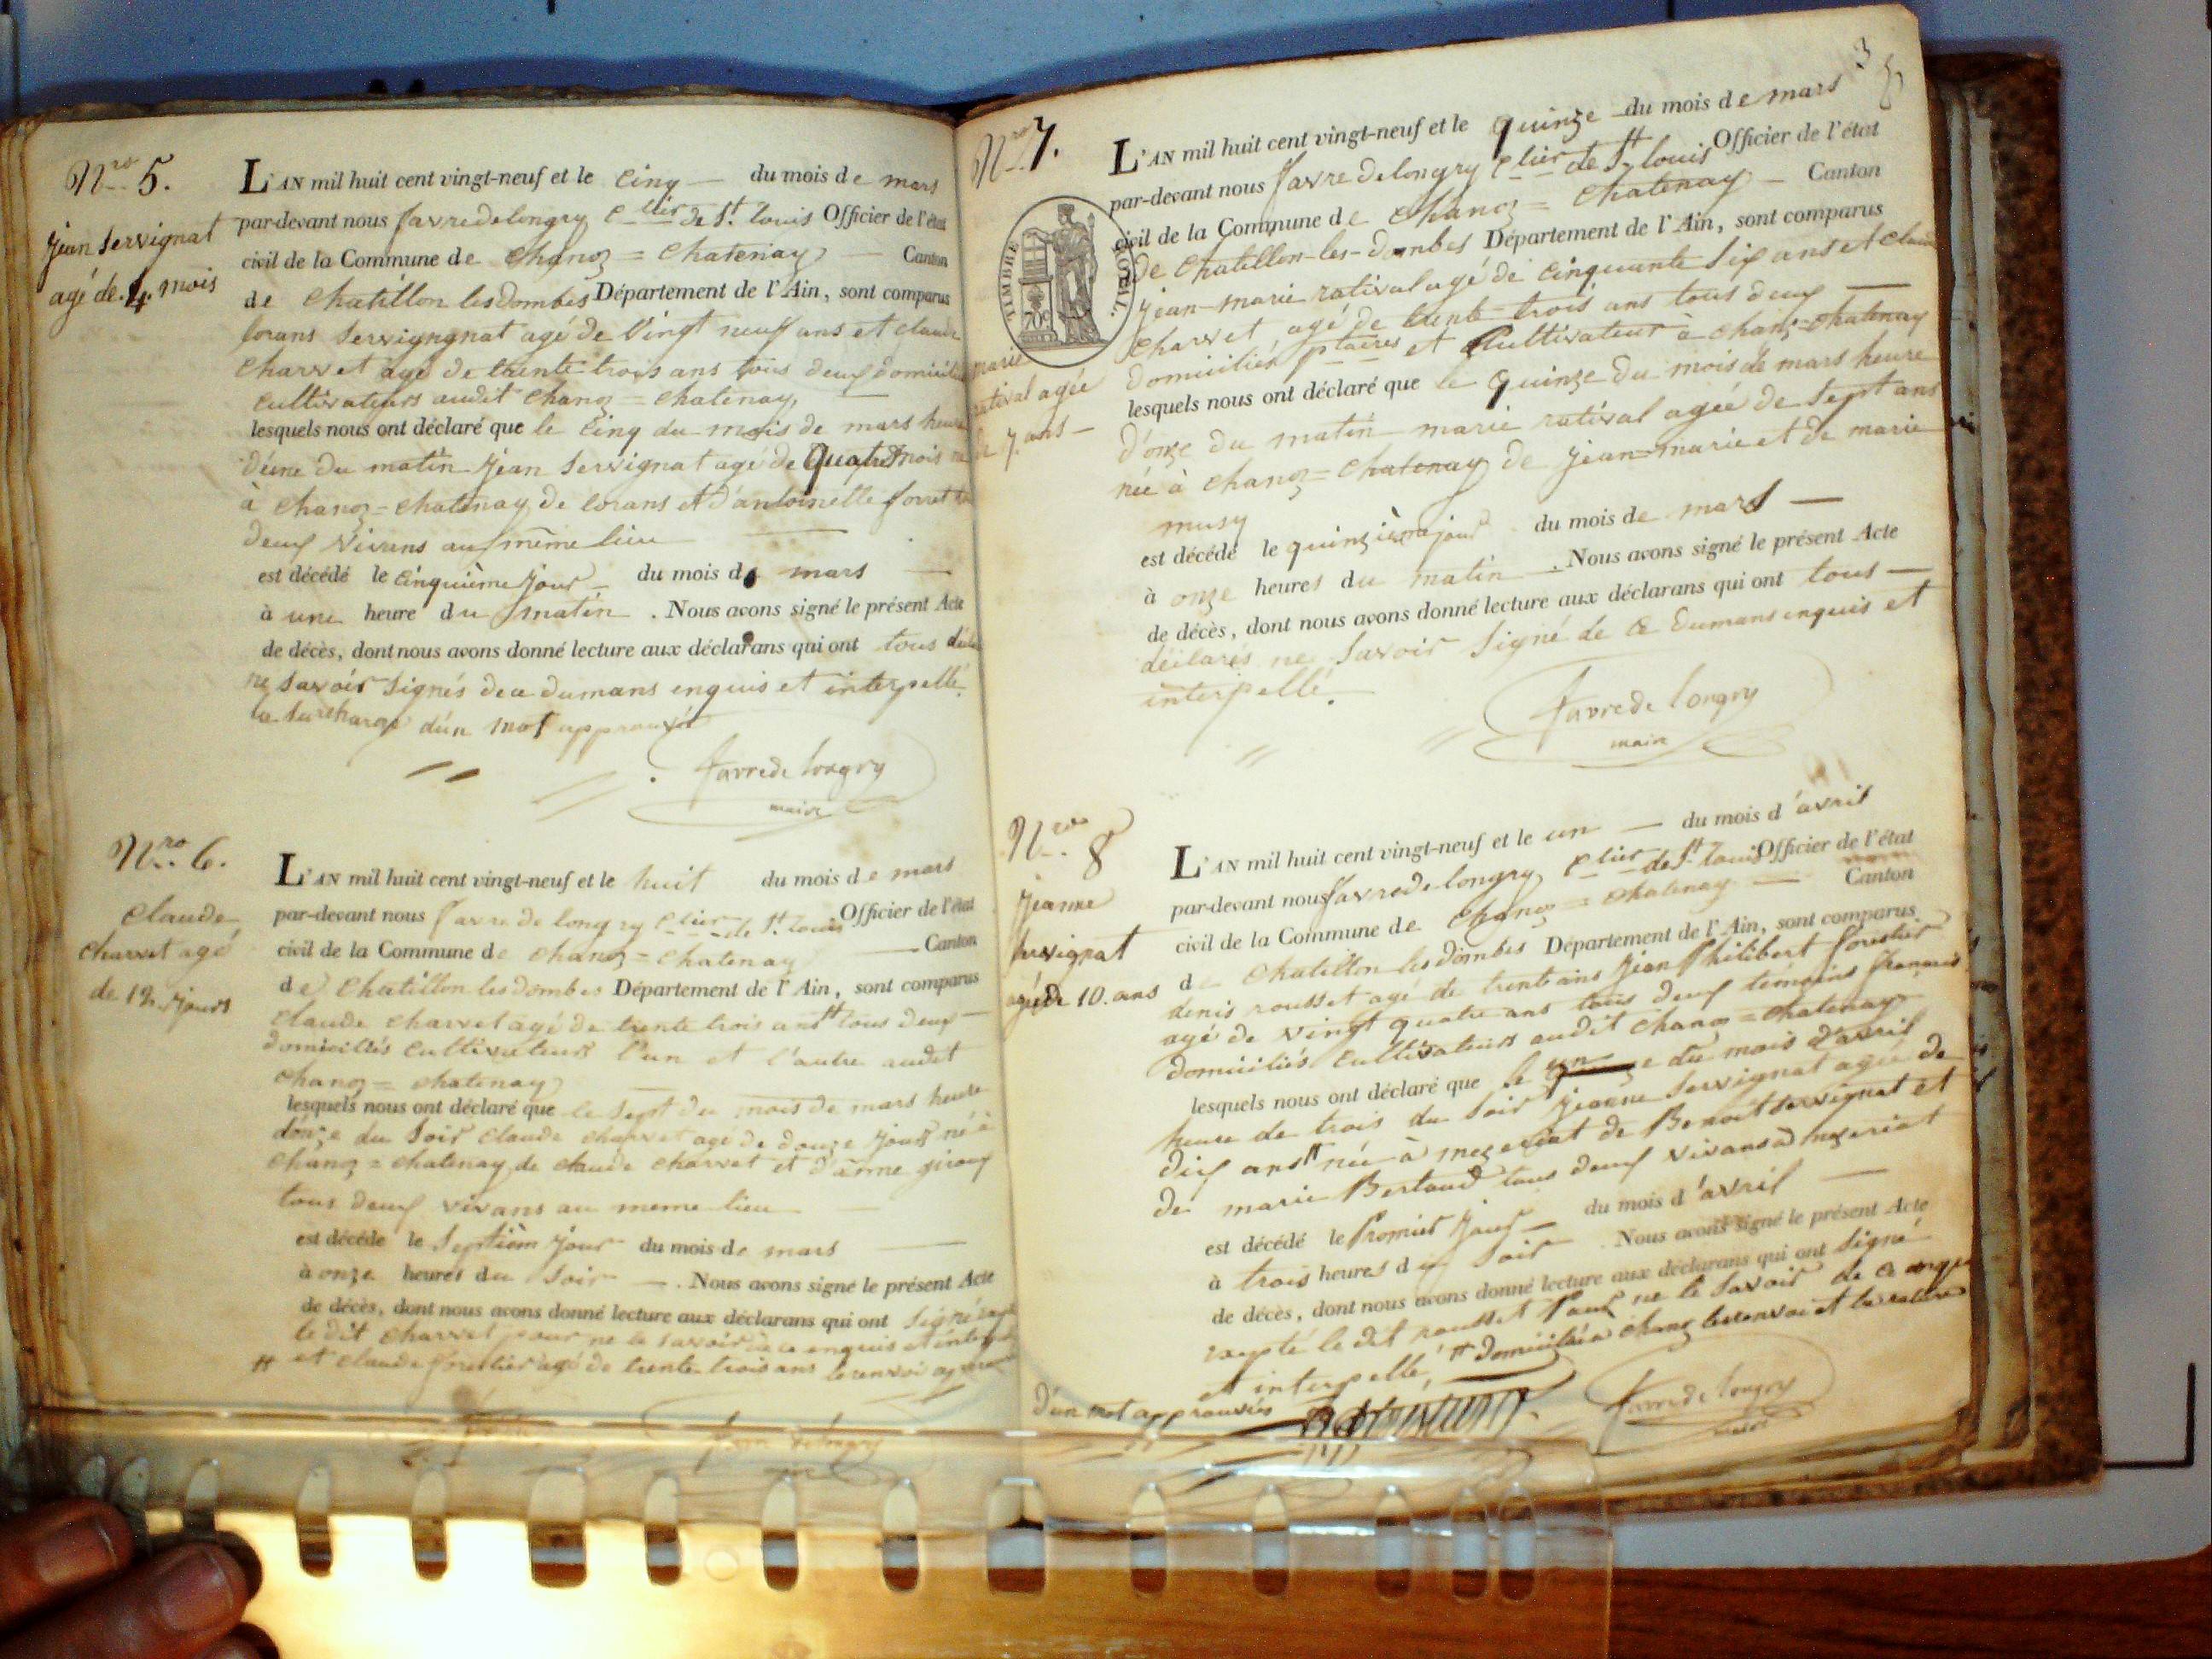 Nro 5.
jean Servignat
agé de 4. mois
L'AN mil huit cent vingt-neuf et le cinq du mois de mars
par-devant nous favre de longry C lier de St. Louis Officier de l'état
civil de la Commune de chanoz = chatenay Canton
de chatillon les dombes Département de l'Ain, sont comparus
lorans Servigngnat agé de Vingt neuf ans et claude
charvet agé de trente trois ans tous deux domiciliés
cultivateurs audit chanoz = chatenay
lesquels nous ont déclaré que le cinq du mois de mars heure
d'une du matin jean Servignat agé de quatre mois né
à chanoz = chatenay de lorans et d'antoinette forret
deux vivans au même lieu
est décédé le cinquième jour du mois de mars
à une heure du matin . Nous avons signé le présent Acte
de décès, dont nous avons donné lecture aux déclarans qui ont tous
ne savoir signés de ce dumans enquis et interpellé
la surcharge d'un mot approuvée
favre de longry
maire
Nro. 6.
claude
charvet agé
de 12. jours
L'AN mil huit cent vingt-neuf et le huit du mois de mars
par-devant nous favre de longry C lier de St. Louis Officier de l'état
civil de la Commune de chanoz = chatenay Canton
de chatillon les dombes Département de l'Ain, sont comparus
claude charvet agé de trente trois ans tt tous deux
domiciliés cultivateurs l'un et l'autre audit
chanoz = chatenay
lesquels nous ont déclaré que le sept du mois de mars heure
d'onze du soir claude charvet agé de douze jours né à
chanoz = chatenay de claude charvet et d'anne giroux
tous deux vivans au meme lieu
est décédé le septièm jour du mois de mars
à onze heures du soir . Nous avons signé le présent Acte
de décès, dont nous avons donné lecture aux déclarans qui ont signé
le dit charvet pour ne le savoir de ce enquis et
tt et claude forestier agé de trente trois ans le renvoi
3
Nro 7.
TIMBRE ROYAL.
70c
marie
rativalagée
de 7. ans
L'AN mil huit cent vingt-neuf et le quinze du mois de mars
par-devant nous favre de longry C lier de St. louis Officier de l'état
civil de la Commune de chanoz = chatenay Canton
de chatillon-les-dombes Département de l'Ain, sont comparus
jean-marie rativalagé de cinquante six ans et claude
charvet, agé de trente-trois ans tous deux
domiciliés et cultivateur à chanoz = chatenay
lesquels nous ont déclaré que le quinze du mois de mars heure
d'onze du matin marie ratival agée de sept ans
née à chanoz = chatenay de jean=marie et de marie
musy
est décédé le quinzième jour du mois de mars
à onze heures du matin . Nous avons signé le présent Acte
de décès, dont nous avons donné lecture aux déclarans qui ont tous
déclarés ne savoir signé de ce dumans enquis et
interpellé.
favre de longry
maire
Nro. 8
jeanne
servignat
agée de 10. ans
L'AN mil huit cent vingt-neuf et le un du mois d'avril
par-devant nous favre de longry C lier de St. Louis Officier de l'état
civil de la Commune de chanoz = chatenay Canton
de chatillon les dombes Département de l'Ain, sont comparus
denis rousset agé de trente ans jean Philibert forestier
agé de vingt quatre ans tous deux témoins français
domiciliés cultivateurs audit chanoz = chatenay
lesquels nous ont déclaré que le un du mois d'avril
heure de trois du soir jeanne Servignat agée de
dix ans tt née à mezeriat de Benoit servignat et
de marie Bertaud tous deux vivans à mezeriat
est décédé le Premier jour du mois d'avril
à trois heures du soir . Nous avons signé le présent Acte
de décès, dont nous avons donné lecture aux déclarans qui ont signé
excepté le dit rousset Pour ne le savoir de ce enquis
et interpellé, tt domiciliée à chanoz le renvoi et la rature
d'un mot approuvés
favre de longry